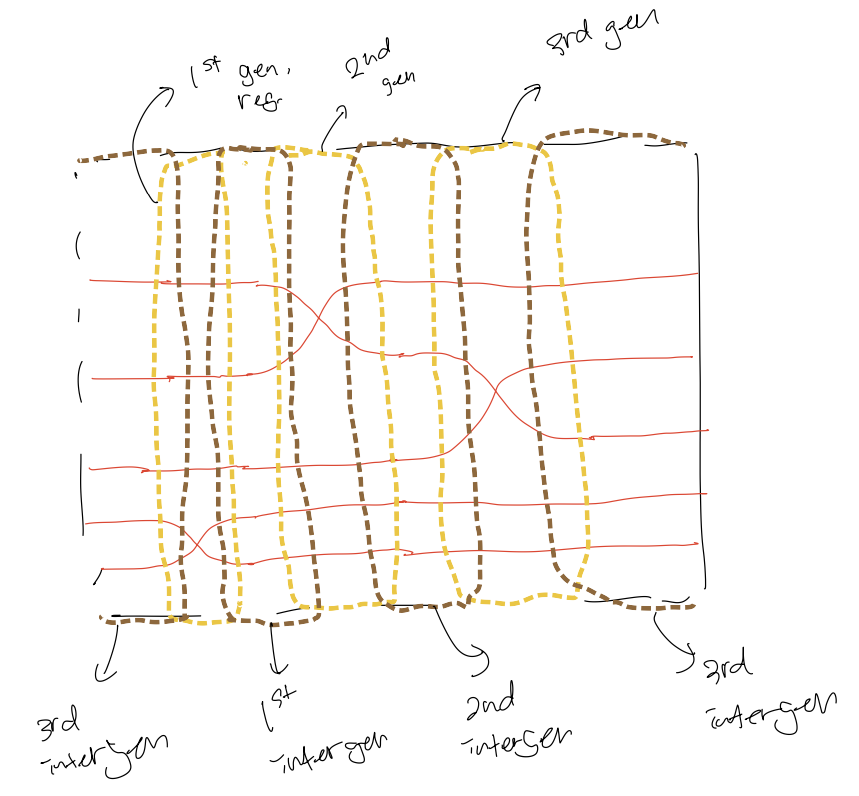 1st gen.
reg.
2nd
gen
3rd gen
3rd
intergen
1st
intergen
2nd
intergen
3rd
intergen